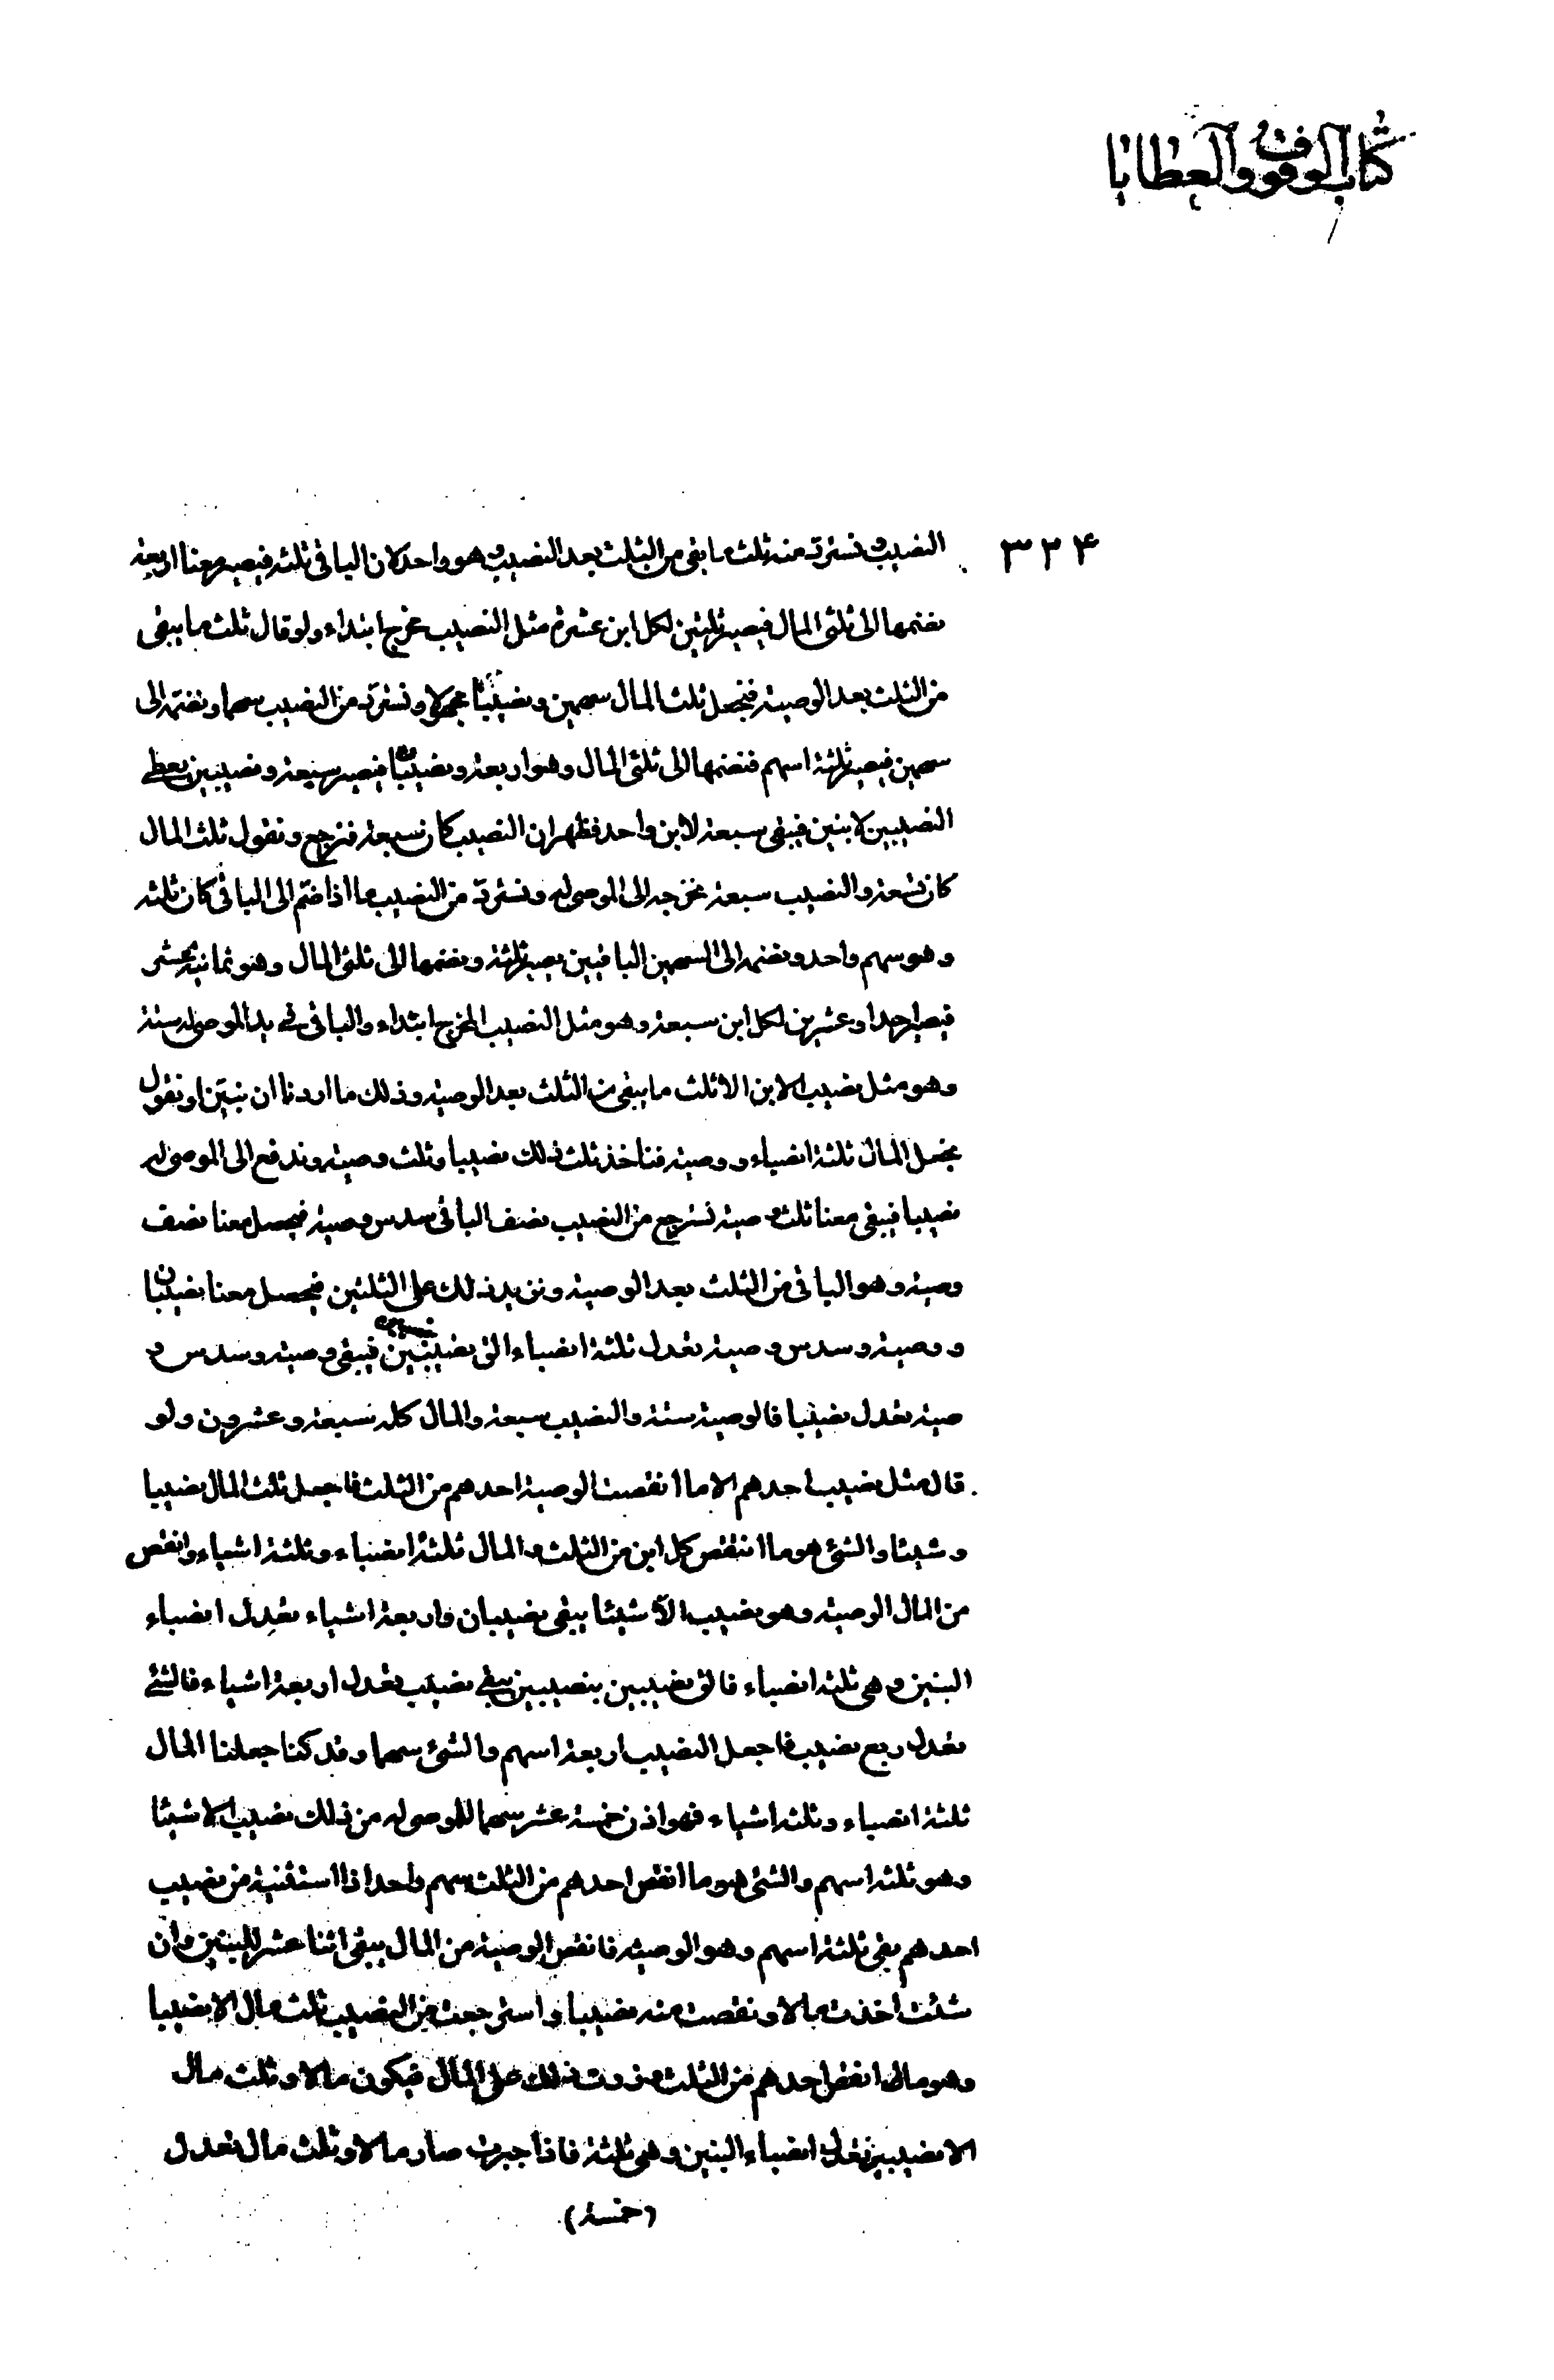 كتاب الوقوف والعطايا
٣٢۴
النصيب ونسترد منه ثلث ما بقى من الثلث بعد النصيب وهو واحد لان الباقى ثلثه فيصير معنا اربعة
نضمها الى ثلثى المال فيصير ثلثين لكل ابن عشرة مثل النصيب مخرج ابتداء ولو قال ثلث ما يبقى
من الثلث بعد الوصية فنجعل ثلث المال سهمين ونصيبا مجهولا ونسترد من النصيب سهما ونضمه الى
سهمين فيصير ثلثة اسهم فنضمها الى ثلثى المال وهو اربعة ونصيبان فيصير سبعة ونصيبين يعطى
النصيبين لابنين فيبقى سبعة لابن واحد فظهر ان النصيب كان سبعة فنرجع ونقول ثلث المال
كان تسعة والنصيب سبعة نخرجه الى الموصى له ونسترد من النصيب ما اذا ضم الى الباقى كان ثلثه
وهو سهم واحد ونضمه الى السهمين الباقيين يصير ثلثة ونضمها الى ثلثى المال وهو ثمانية عشر
فيصير احدا وعشرين لكل ابن سبعة وهو مثل النصيب المخرج ابتداء والباقى فى يد الموصى له ستة
وهو مثل نصيب الابن الا ثلث ما يبقى من الثلث بعد الوصية وذلك ما اردنا ان نبين او نقول
نجعل المال ثلثة انصباء ووصية فناخذ ثلث ذلك نصيبا وثلث وصية وندفع الى الموصى له
نصيبا فيبقى معنا ثلث وصية نسترجع من النصيب نصف الباقى سدس وصية فيحصل معنا نصف
وصية وهو الباقى من الثلث بعد الوصية ونزيد ذلك على الثلثين فيحصل معنا نصيبان
ووصية وسدس وصية تعدل ثلثة انصباء الق نصيبين فيبقى وصية وسدس و
صية تعدل نصيبا فالوصية ستة والنصيب سبعة والمال كله سبعة وعشرون ولو
قال مثل نصيب احدهم الا ما انقصت الوصية احدهم من الثلث فاجعل ثلث المال نصيبا
وشيئا والشئ هو ما انتقص كل ابن من الثلث والمال ثلثة انصباء وثلثة اشياء وانقص
من المال الوصية وهو نصيب الا شيئا يبقى نصيبان واربعة اشياء تعدل انصباء
البنين وهى ثلثة انصباء فالق نصيبين بنصيبين يبقى نصيب يعدل اربعة اشياء فالشئ
تعدل ربع نصيب فاجعل النصيب اربعة اسهم والشئ سهما وقد كنا جعلنا المال
ثلثة انصباء وثلثة اشياء فهو اذن خمسة عشر سهما للموصى له من ذلك نصيب الا شيئا
وهو ثلثة اسهم والشئ هو ما انقص احدهم من الثلث سهم واحد اذا استثنيته من نصيب
احدهم بقى ثلثة اسهم وهو الوصية فانقص الوصية من المال يبقى اثنا عشر للبنين وان
شئت اخذت مالا ونقصت منه نصيبا واسترجعت من النصيب ثلث مال الا نصيبا
وهو ما انقص احدهم من الثلث وزدت ذلك على المال فيكون مالا وثلث مال
الا نصيبين تعدل انصباء البنين وهى ثلثة فاذا جبرت صار مالا وثلث مال تعدل
(خمسة)